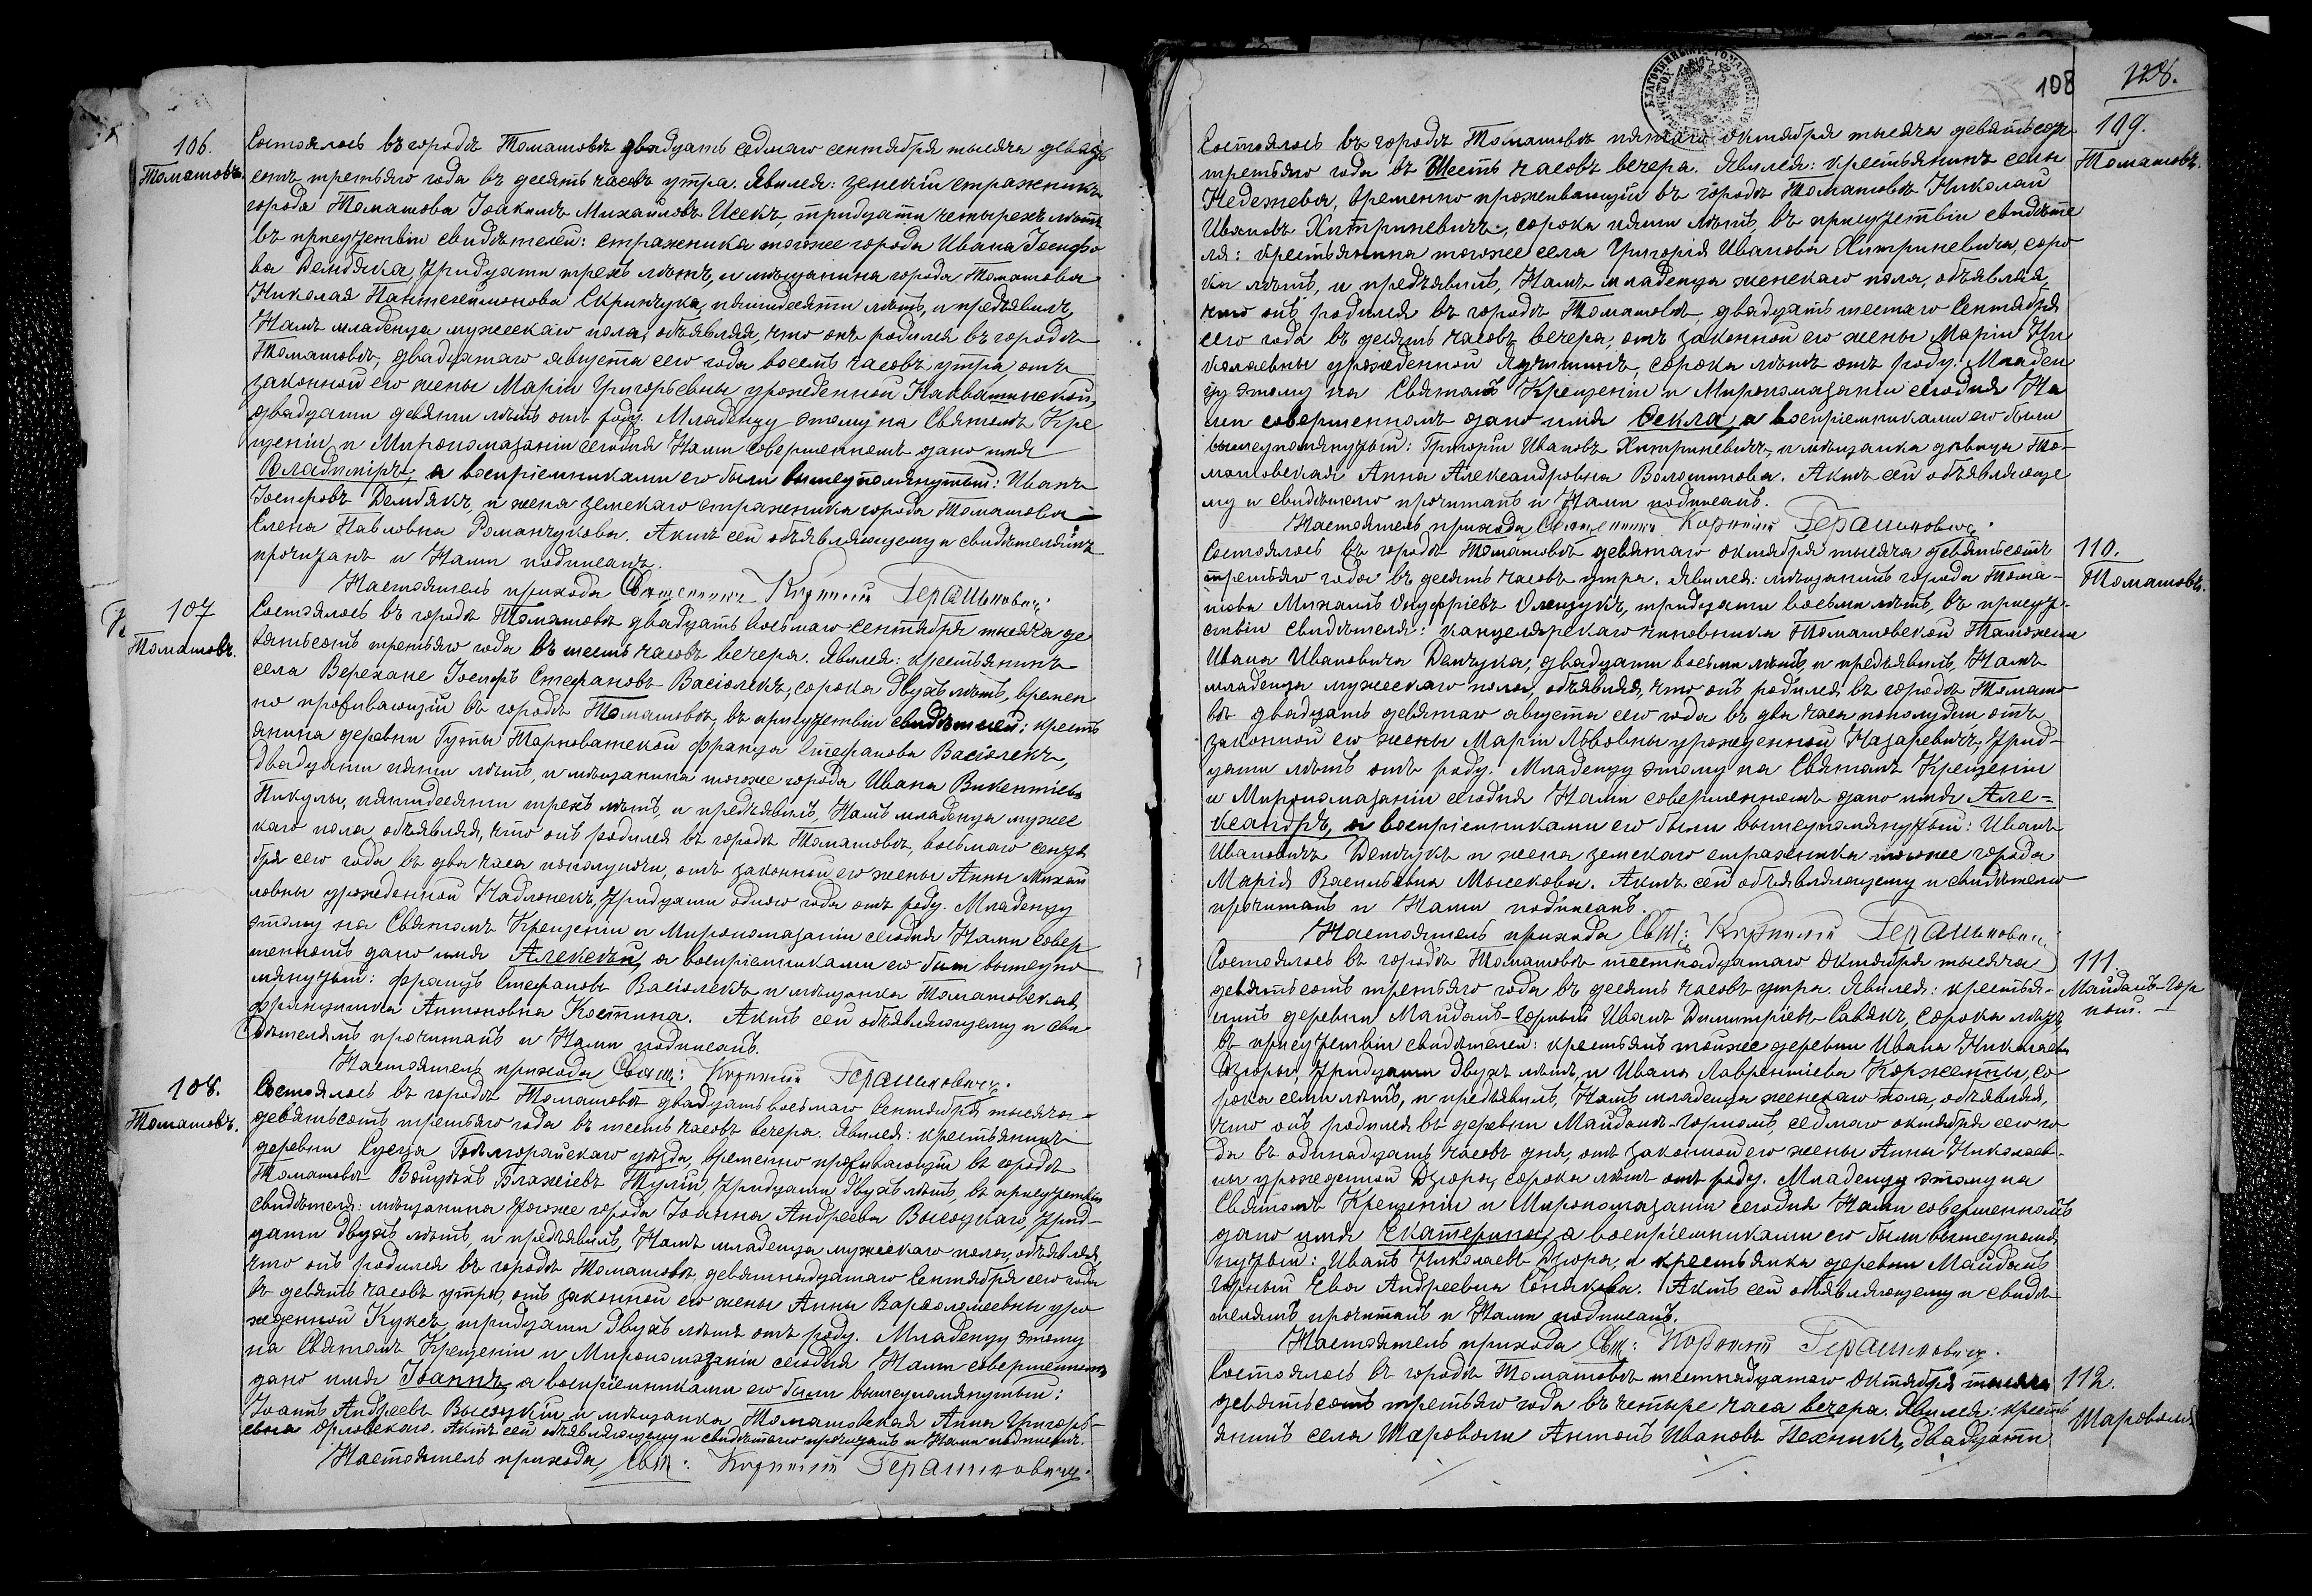 106.
Томашовъ.
Состоялось въ городѣ Томашовѣ двадцать седмаго сентября тысяча девять
сотъ третьяго года въ десять часовъ утра. Явился: земскій стражникъ
города Томашова Іоакимъ Михайловъ Исекъ, тридцати четырехъ лѣтъ
въ присутствіи свидѣтелей: стражника тогоже города Ивана Іосифо
ва Дембяка, тридцати трехъ лѣтъ, и мѣщанина города Томашова
Николая Пантелеимонова Скринчука, пятидесяти лѣтъ, и предъявилъ,
Намъ младенца мужескаго пола, объявляя, что онъ родился въ городѣ
Томашовѣ, двадцатаго августа сего года восемь часовъ утра, отъ
законной его жены Маріи Григорьевны урожденной Наквашинской,
двадцати девяти лѣтъ отъ роду. Младенцу этому на Святомъ Кре
щеніи и Миропомазаніи сегодня Нами совершенномъ дано имя
Владиміръ, а воспріемниками его были вышеупомянутый: Иванъ
Іосифовъ Дембякъ, и жена земскаго стражника города Томашова
Елена Павловна Романчукова. Актъ сей объявляющему и свидѣтелямъ
прочитанъ и Нами подписанъ.
Настоятель прихода Священникъ Корнилій Герашковичъ.
107
Томашовъ.
Состоялось въ городѣ Томашовѣ двадцать восьмаго сентября тысяча де
вятьсотъ третьяго года въ шесть часовъ вечера. Явился: крестьянинъ
села Верехане Іосифъ Стефановъ Васіолекъ, сорока двухъ лѣтъ, времен
но проживающій въ городѣ Томашовѣ, въ присутствіи свидѣтелей: кресть
янина деревни Гуты Тарноватской Франца Стефанова Васіолекъ,
двадцати пяти лѣтъ, и мѣщанина тогоже города Ивана Викентіева
Пикулы, пятидесяти трехъ лѣтъ, и предъявилъ, Намъ младенца мужес
каго пола, объявляя, что онъ родился въ городѣ Томашовѣ, восьмаго сентя
бря сего года въ два часа пополуночи, отъ законной его жены Анны Михай
ловны урожденной Надлонекъ, тридцати одного года отъ роду. Младенцу
этому на Святомъ Крещеніи и Миропомазаніи сегодня Нами совер
шенномъ дано имя Алексѣй, а воспріемниками его были вышеупо
мянутый: Францъ Стефановъ Васіолекъ и мѣщанка Томашовская
Францишка Антоновна Костина. Актъ сей объявляющему и сви
дѣтелямъ прочитанъ и Нами подписанъ.
Настоятель прихода Свящ: Корнилій Герашковичъ.
108.
Томашовъ.
Состоялось въ городѣ Томашовѣ двадцать восьмаго Сентября тысяча
девятьсотъ третьяго года въ шесть часовъ вечера. Явился: крестьянинъ
деревни Сусца Бѣлгорайскаго уѣзда, временно проживающій въ городѣ
Томашовѣ Войцѣхъ Блажіевъ Тулій, тридцати двухъ лѣтъ, въ присутствіи
свидѣтеля: мѣщанина тогоже города Іоанна Андреева Высоцкаго, трид-
цати двухъ лѣтъ, и предъявилъ, Намъ младенца мужескаго пола, объявляя,
что онъ родился въ городѣ Томашовѣ, девятнадцатаго Сентября сего года
въ девять часовъ утра, отъ законной его жены Анны Варѳоломеевны уро
жденной Куксъ, тридцати двухъ лѣтъ отъ роду. Младенцу этому
на Святомъ Крещеніи и Миропомазаніи сегодня Нами совершенномъ
дано имя Іоаннъ, а воспріемниками его были вышеупомянутый:
Іоаннъ Андреевъ Высоцкій и мѣщанка Томашовская Анна Григорь-
евна Орловскаго. Актъ сей объявляющему и свидѣтелю прочитанъ и Нами подписанъ.
Настоятель прихода, Свщ: Корнилій Герашковичъ.
108
128.
109.
Томашовъ.
Состоялось въ городѣ Томашовѣ пятаго октября тысяча девятьсотъ
третьяго года въ шесть часовъ вечера. Явился: крестьянинъ села
Недежева, временно проживающій въ городѣ Томашовѣ Николай
Ивановъ Хитриневичъ, сорока пяти лѣтъ, въ присутствіи свидѣте
ля: крестьянина тогоже села Григорія Иванова Хитриневича, соро
ка лѣтъ, и предъявилъ, Намъ младенца женскаго пола, объявляя,
что онъ родился въ городѣ Томашовѣ, двадцать шестаго Сентября
сего года въ десять часовъ вечера, отъ законной его жены Маріи Ни
колаевны урожденной Лучишинъ, сорока лѣтъ отъ роду. Младен
цу этому на Святомъ Крещеніи и Миропомазаніи сегодня На
ми совершенномъ дано имя Ѳекла, а воспріемниками его были
вышеупомянутый: Григорій Ивановъ Хитриневичъ, и мѣщанка дѣвица То-
машовская Анна Александровна Волошинова. Актъ сей объявляюще
му и свидѣтелю прочитанъ и Нами подписанъ.
Настоятель прихода Священникъ Корнилій Герашковичъ.
110.
Томашовъ.
Состоялось въ городѣ Томашовѣ девятаго октября тысяча девятьсотъ
третьяго года въ десять часовъ утра. Явился: мѣщанинъ города Тома-
шова Михаилъ Онуфріевъ Олещукъ, тридцати восьми лѣтъ, въ присут-
ствіи свидѣтеля: канцелярскаго чиновника Томашовской Таможни
Ивана Ивановича Демчука, двадцати восьми лѣтъ, и предъявилъ, Намъ
младенца мужескаго пола, объявляя, что онъ родился въ городѣ Томашо
вѣ двадцать девятаго августа сего года въ два часа пополудни, отъ
законной его жены Маріи Львовны урожденной Назаревичъ, трид-
цати лѣтъ отъ роду. Младенцу этому на Святомъ Крещеніи
и Миропомазаніи сегодня Нами совершенномъ дано имя Але-
ксандръ, а воспріемниками его были вышеупомянутый: Иванъ
Ивановичъ Демчукъ и жена земскаго стражника тогоже города
Марія Васильевна Мысекова. Актъ сей объявляющему и свидѣтелю
прочитанъ и Нами подписанъ.
Настоятель прихода Свщ: Корнилій Герашковичъ
111.
Майданъ-Гор
ный.
Состоялось въ городѣ Томашовѣ шестнадцатаго Октября тысяча
девятьсотъ третьяго года въ десять часовъ утра. Явился: крестья-
нинъ деревни Майданъ-Горный Иванъ Димитріевъ Савякъ, сорока лѣтъ
въ присутствіи свидѣтелей: крестьянъ тойже деревни Ивана Николаева
Дзюры, тридцати двухъ лѣтъ, и Ивана Лаврентіева Корженты, со
рока семи лѣтъ, и предъявилъ, Намъ младенца женскаго пола, объявляя,
что онъ родился въ деревни Майданъ-Горномъ, седмаго октября сего го
да въ одинадцать часовъ дня, отъ законной его жены Анны Николаев-
ны урожденной Дзюра, сорока лѣтъ отъ роду. Младенцу этому на
Святомъ Крещеніи и Миропомазаніи сегодня Нами совершенномъ
дано имя Екатерина, а воспріемниками его были вышеупомя
нутый: Иванъ Николаевъ Дзюра, и крестьянка деревни Майданъ
Горный Ева Андреевна Сенякова. Актъ сей объявляющему и свидѣ
телямъ прочитанъ и Нами подписанъ.
Настоятель прихода Свщ: Корнилій Герашковичъ.
112.
Шароволя
Состоялось въ городѣ Томашовѣ шестнадцатаго Октября тысяча
девятьсотъ третьяго года въ четыре часа вечера. Явился: кресть
янинъ села Шароволи Антонъ Ивановъ Пехникъ, двадцати